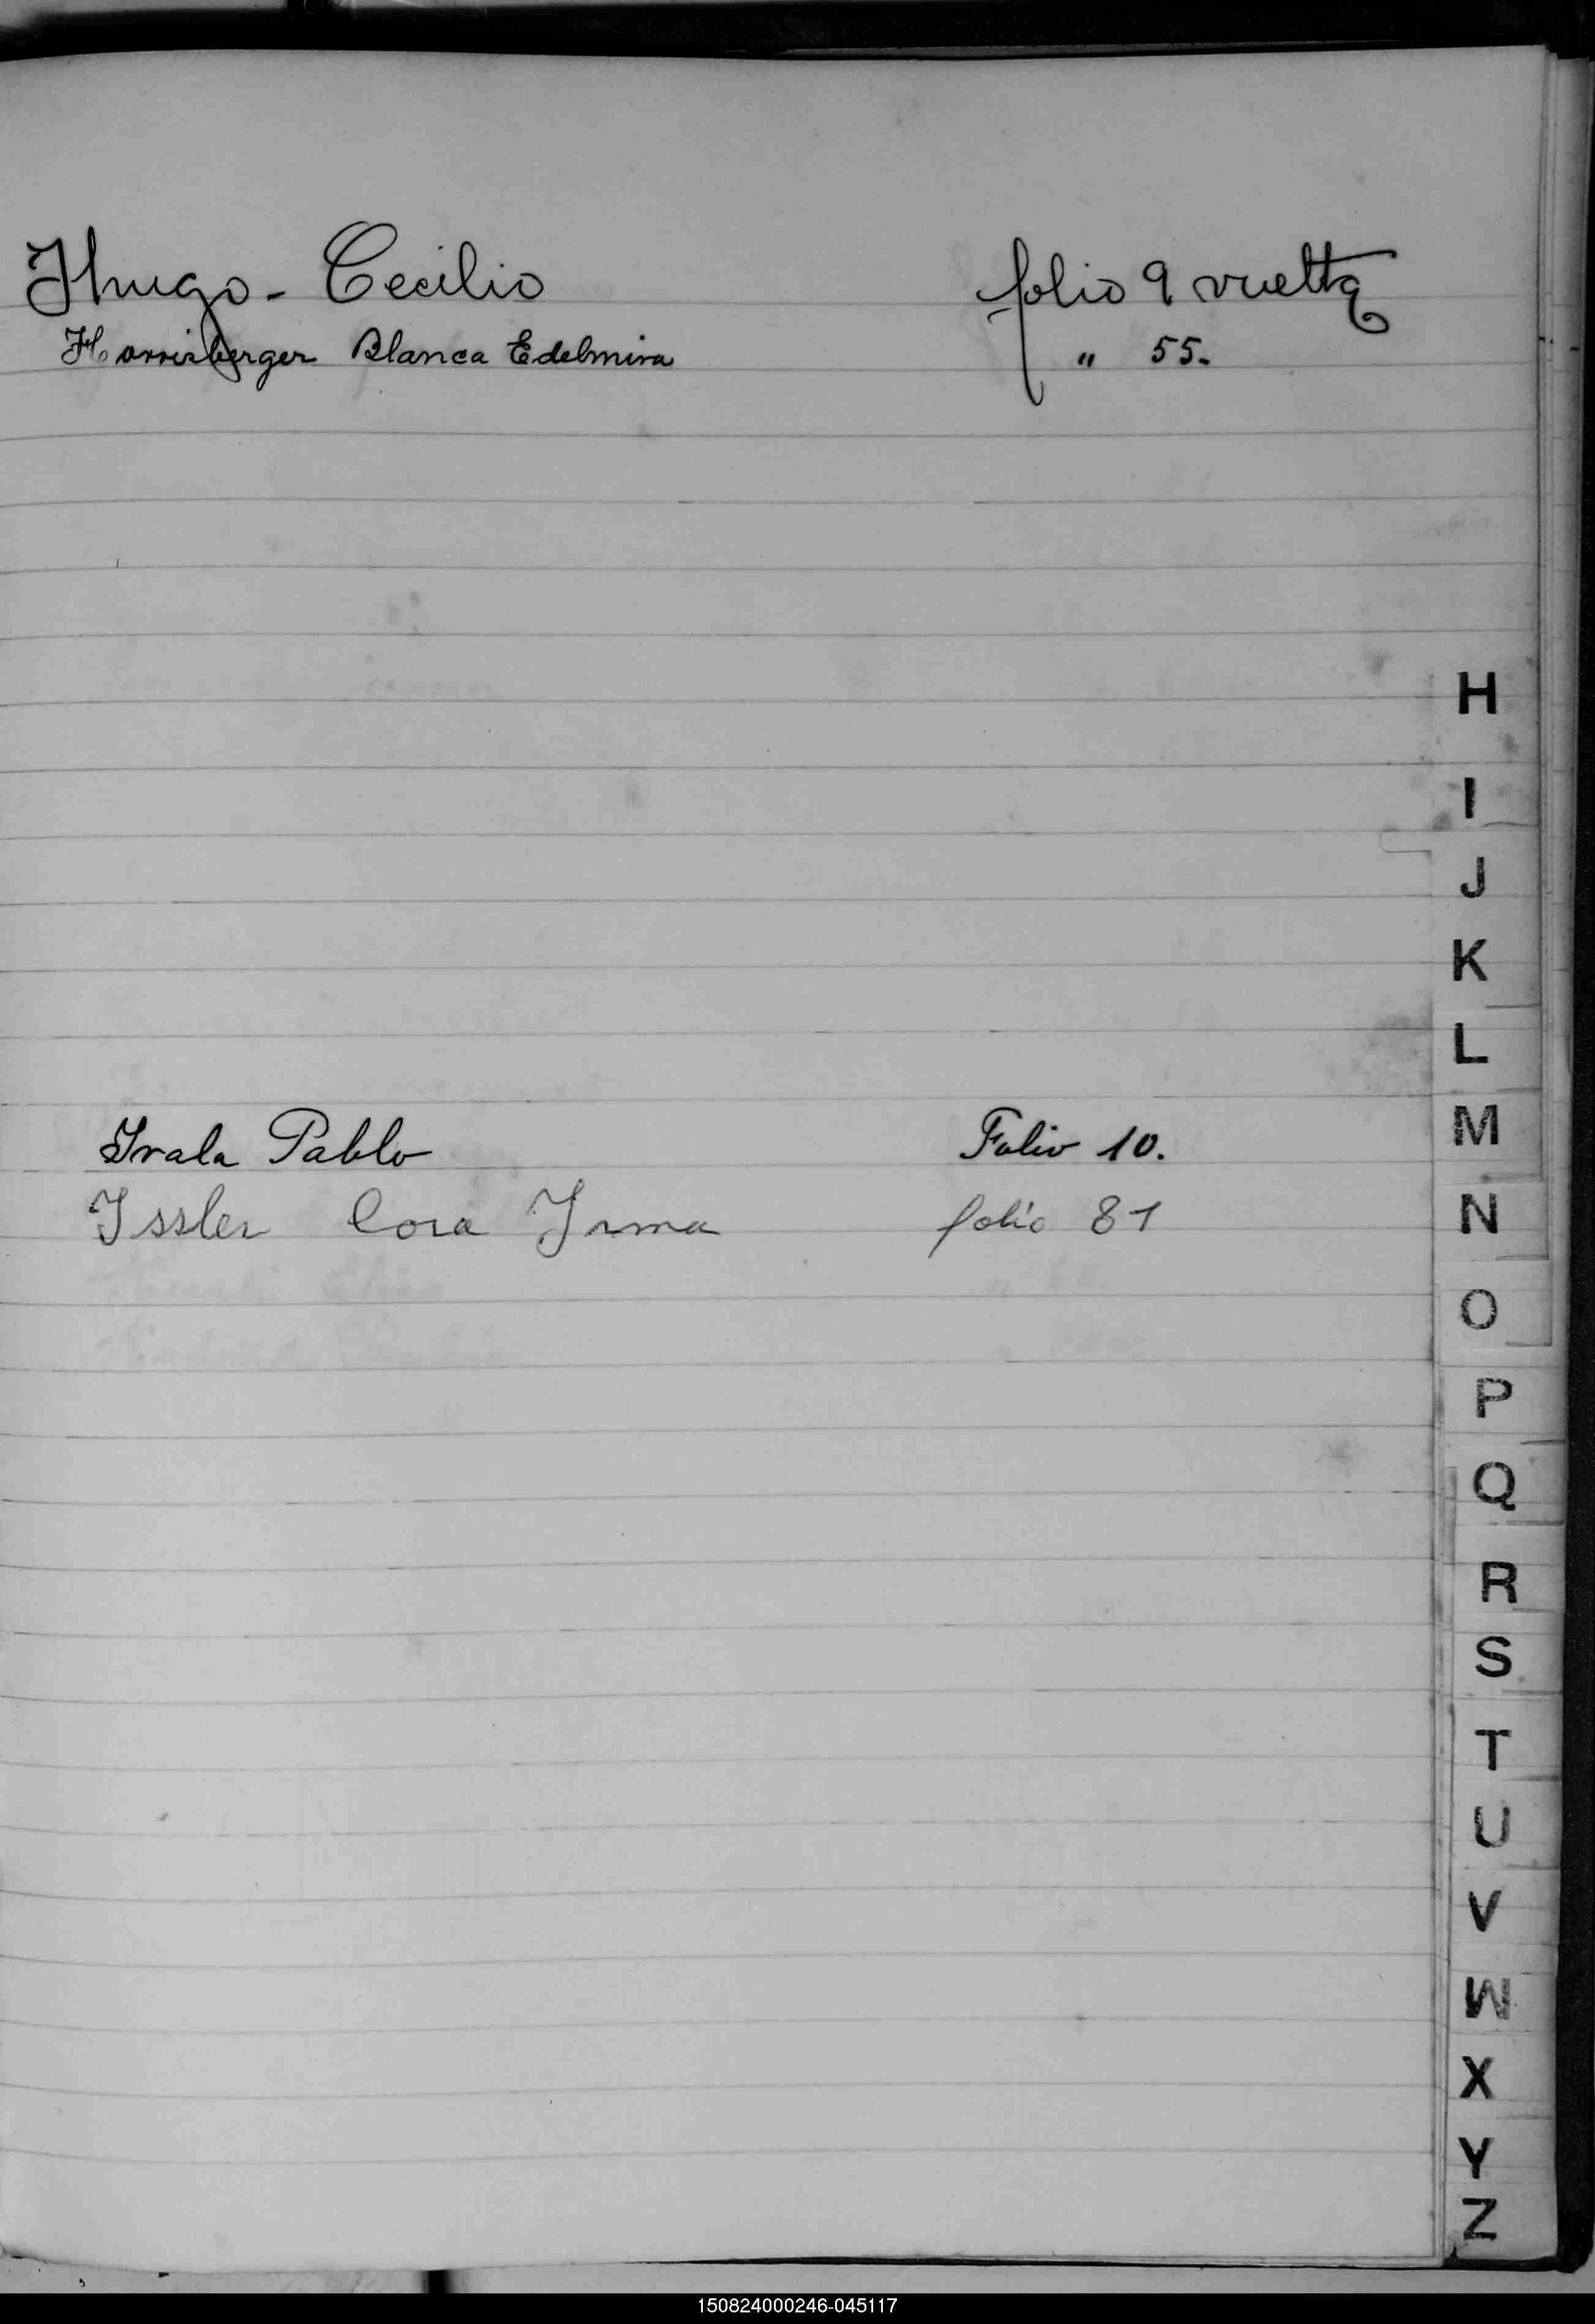 Hugo - Cecilio folio 9 vuelta
Harrisberger Blanca Edelmira " 55.
H
I
J
K
L
Irala Pablo Folio 10.
M
Issler Cora Irma folio 81
N
O
P
Q
R
S
T
U
V
W
X
Y
Z
150824000246-045117